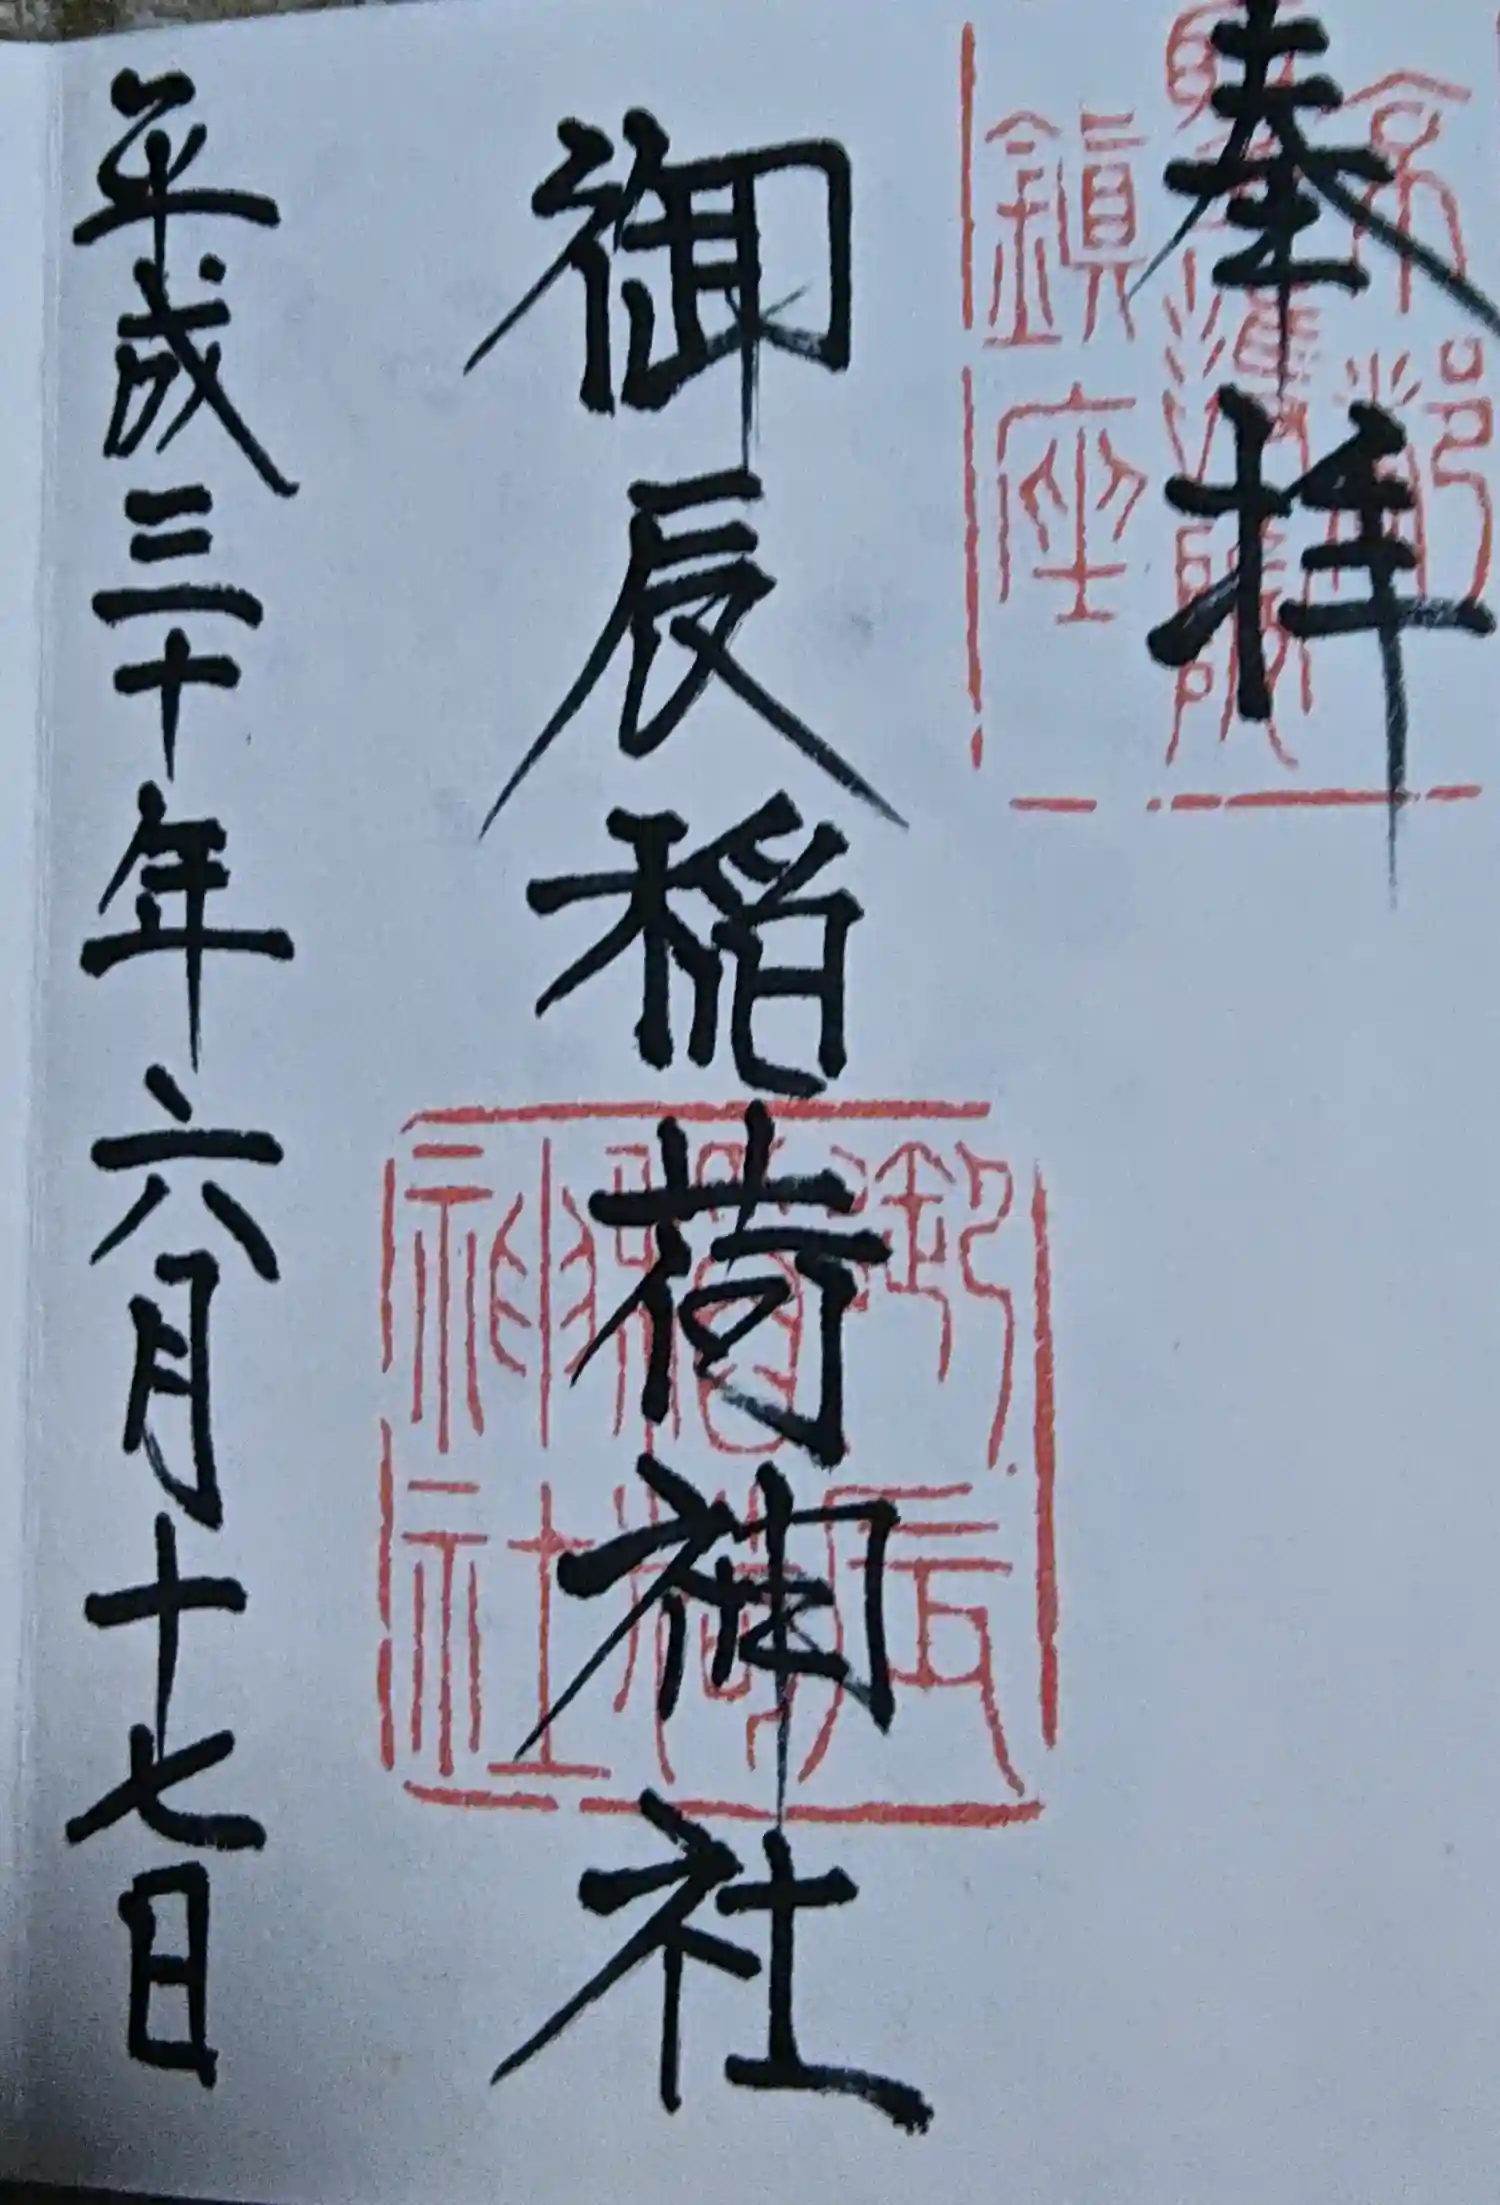 奉拝
京都
聖護院
鎮座
御辰稲荷神社
御辰
稲荷
神社
平成三十年六月十七日